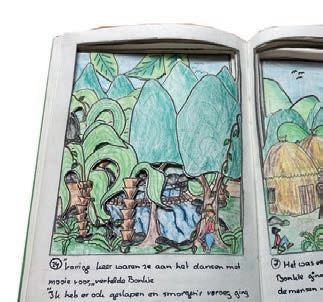 (24) "Vorige keer waren ze aan het dansen met
mooie voor," vertelde Bonkie
"Ik heb er ook geslapen en smorgens vroeg ging
(7) Het was
Bonkie
"Ik